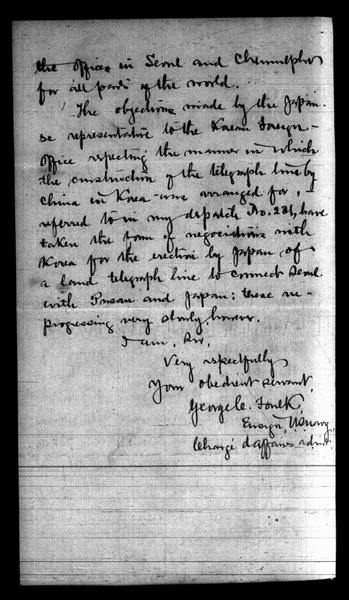 the offices in Seoul and Chemulpho
for all parts of the world.
The objections made by the Japan-
se representative to the Korean Foreign-
Office respecting the manner in which
the construction of the telegraph line by
China in Korea was arranged for,
referred to in my dispatch No. 231, have
taken the form of negociations with
Korea for the erection by Japan, of
a land telegraph line to connect Seoul
with Fusan and Japan: these are
progressing very slowly however.
I am, Sir,
Very respectfully
Your obedient servant,
George C. Foulk,
Ensign, U.S. Navy,
Chargé d'affaires ad int.